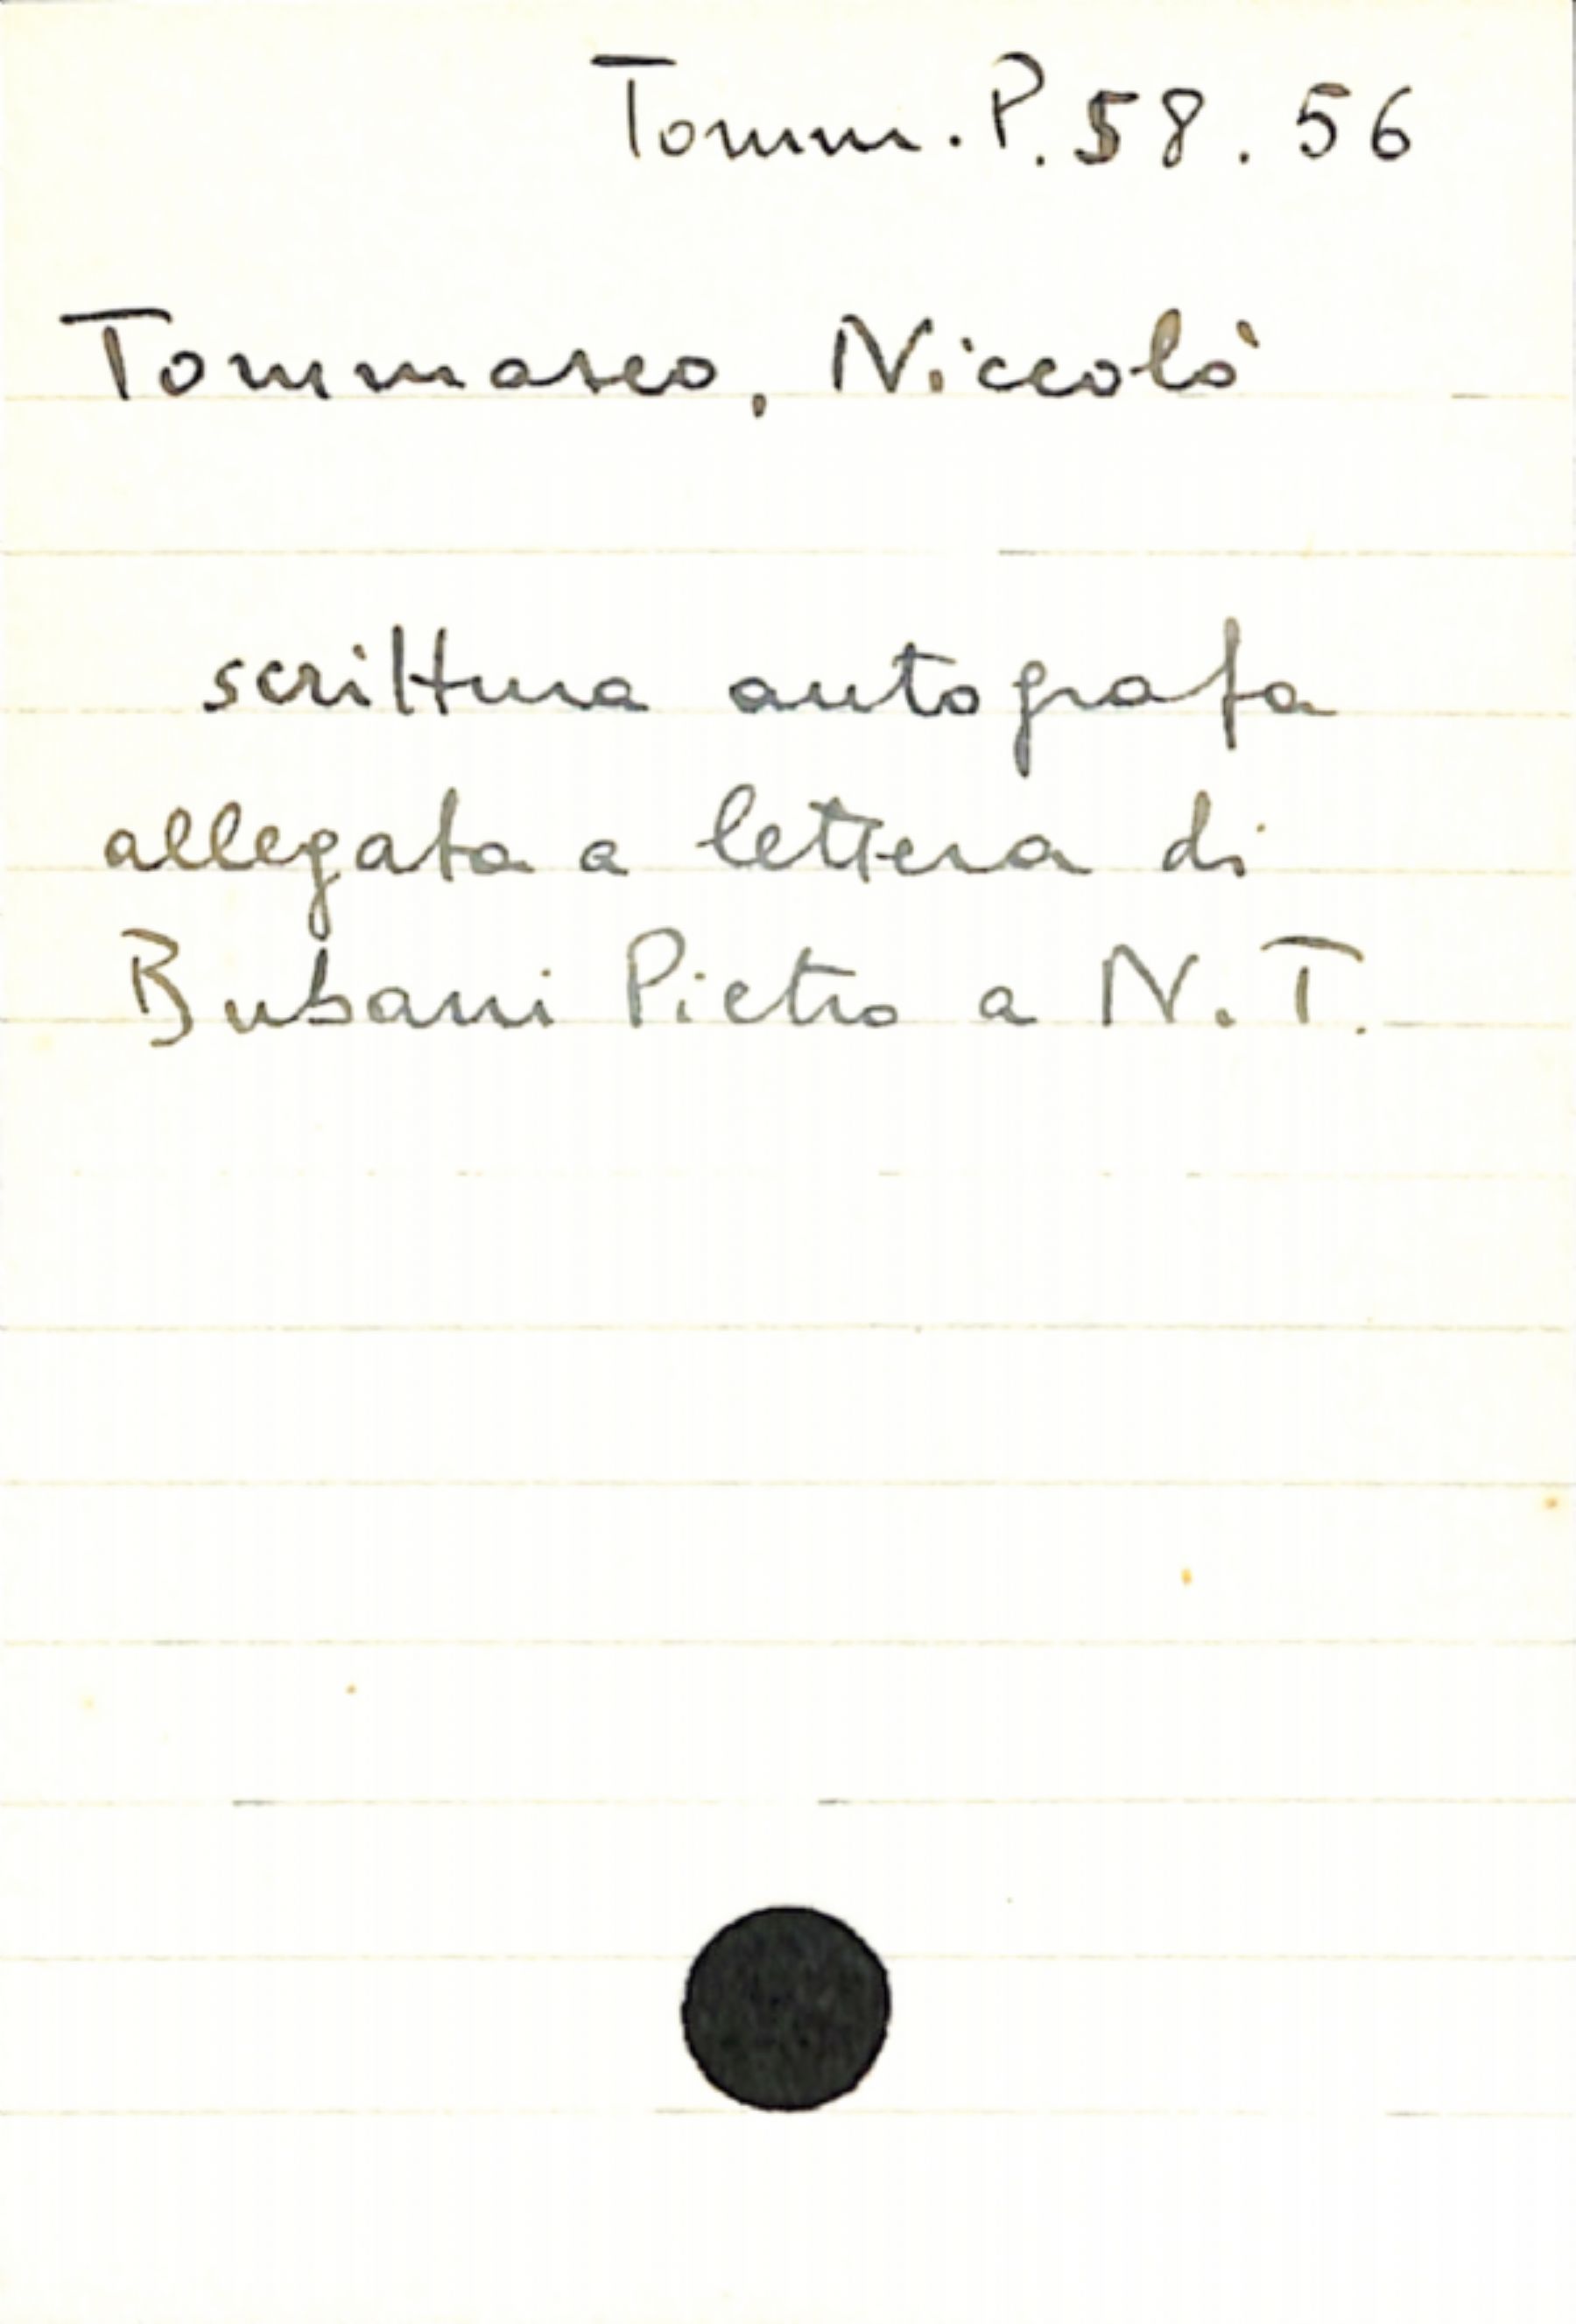 Tomm. P. 58. 56
Tommaseo, Niccolò
scrittura autografa
allegata a lettera di
Bubani Pietro a N. T.